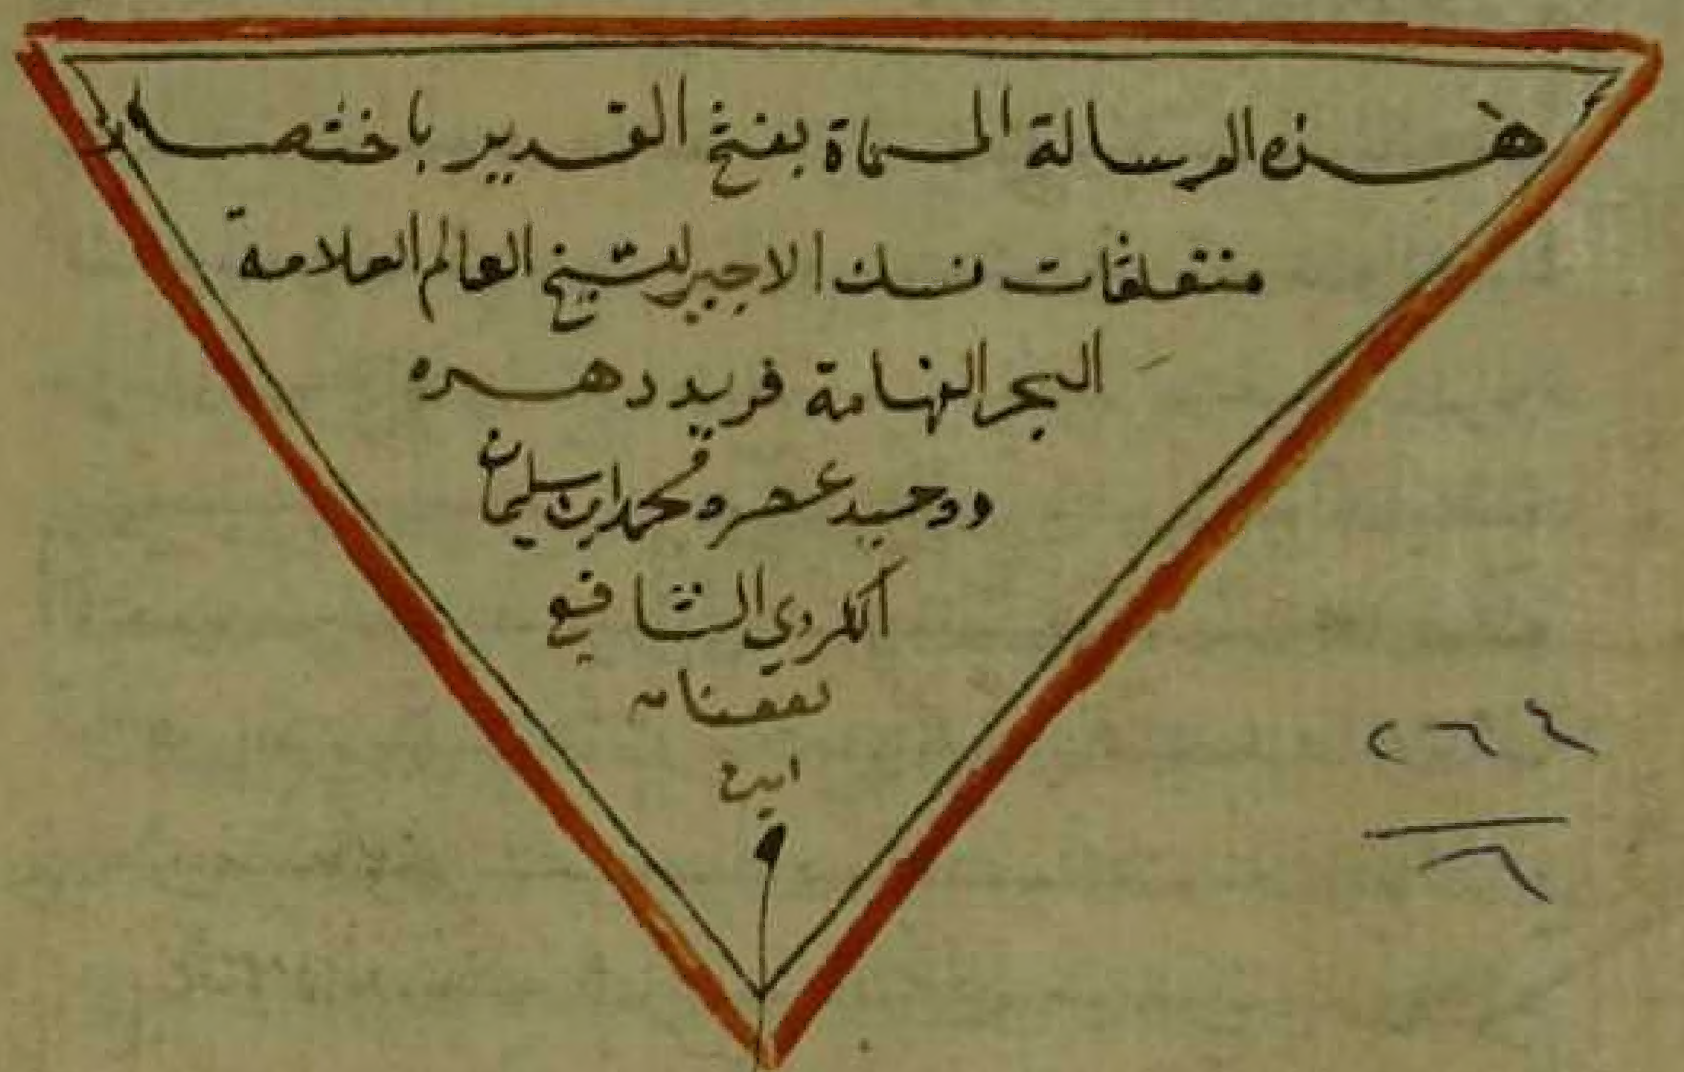 هذه الرسالة المسماة بفتح القدير باختصار
متعلقات نسك الاجير للشيخ العالم العلامة
البحر الفهامة فريد دهره
ووحيد عصره محمد ابن سليمان
الكردي الشافعي
نفعنا به
امين
م
٢٦٤
٦